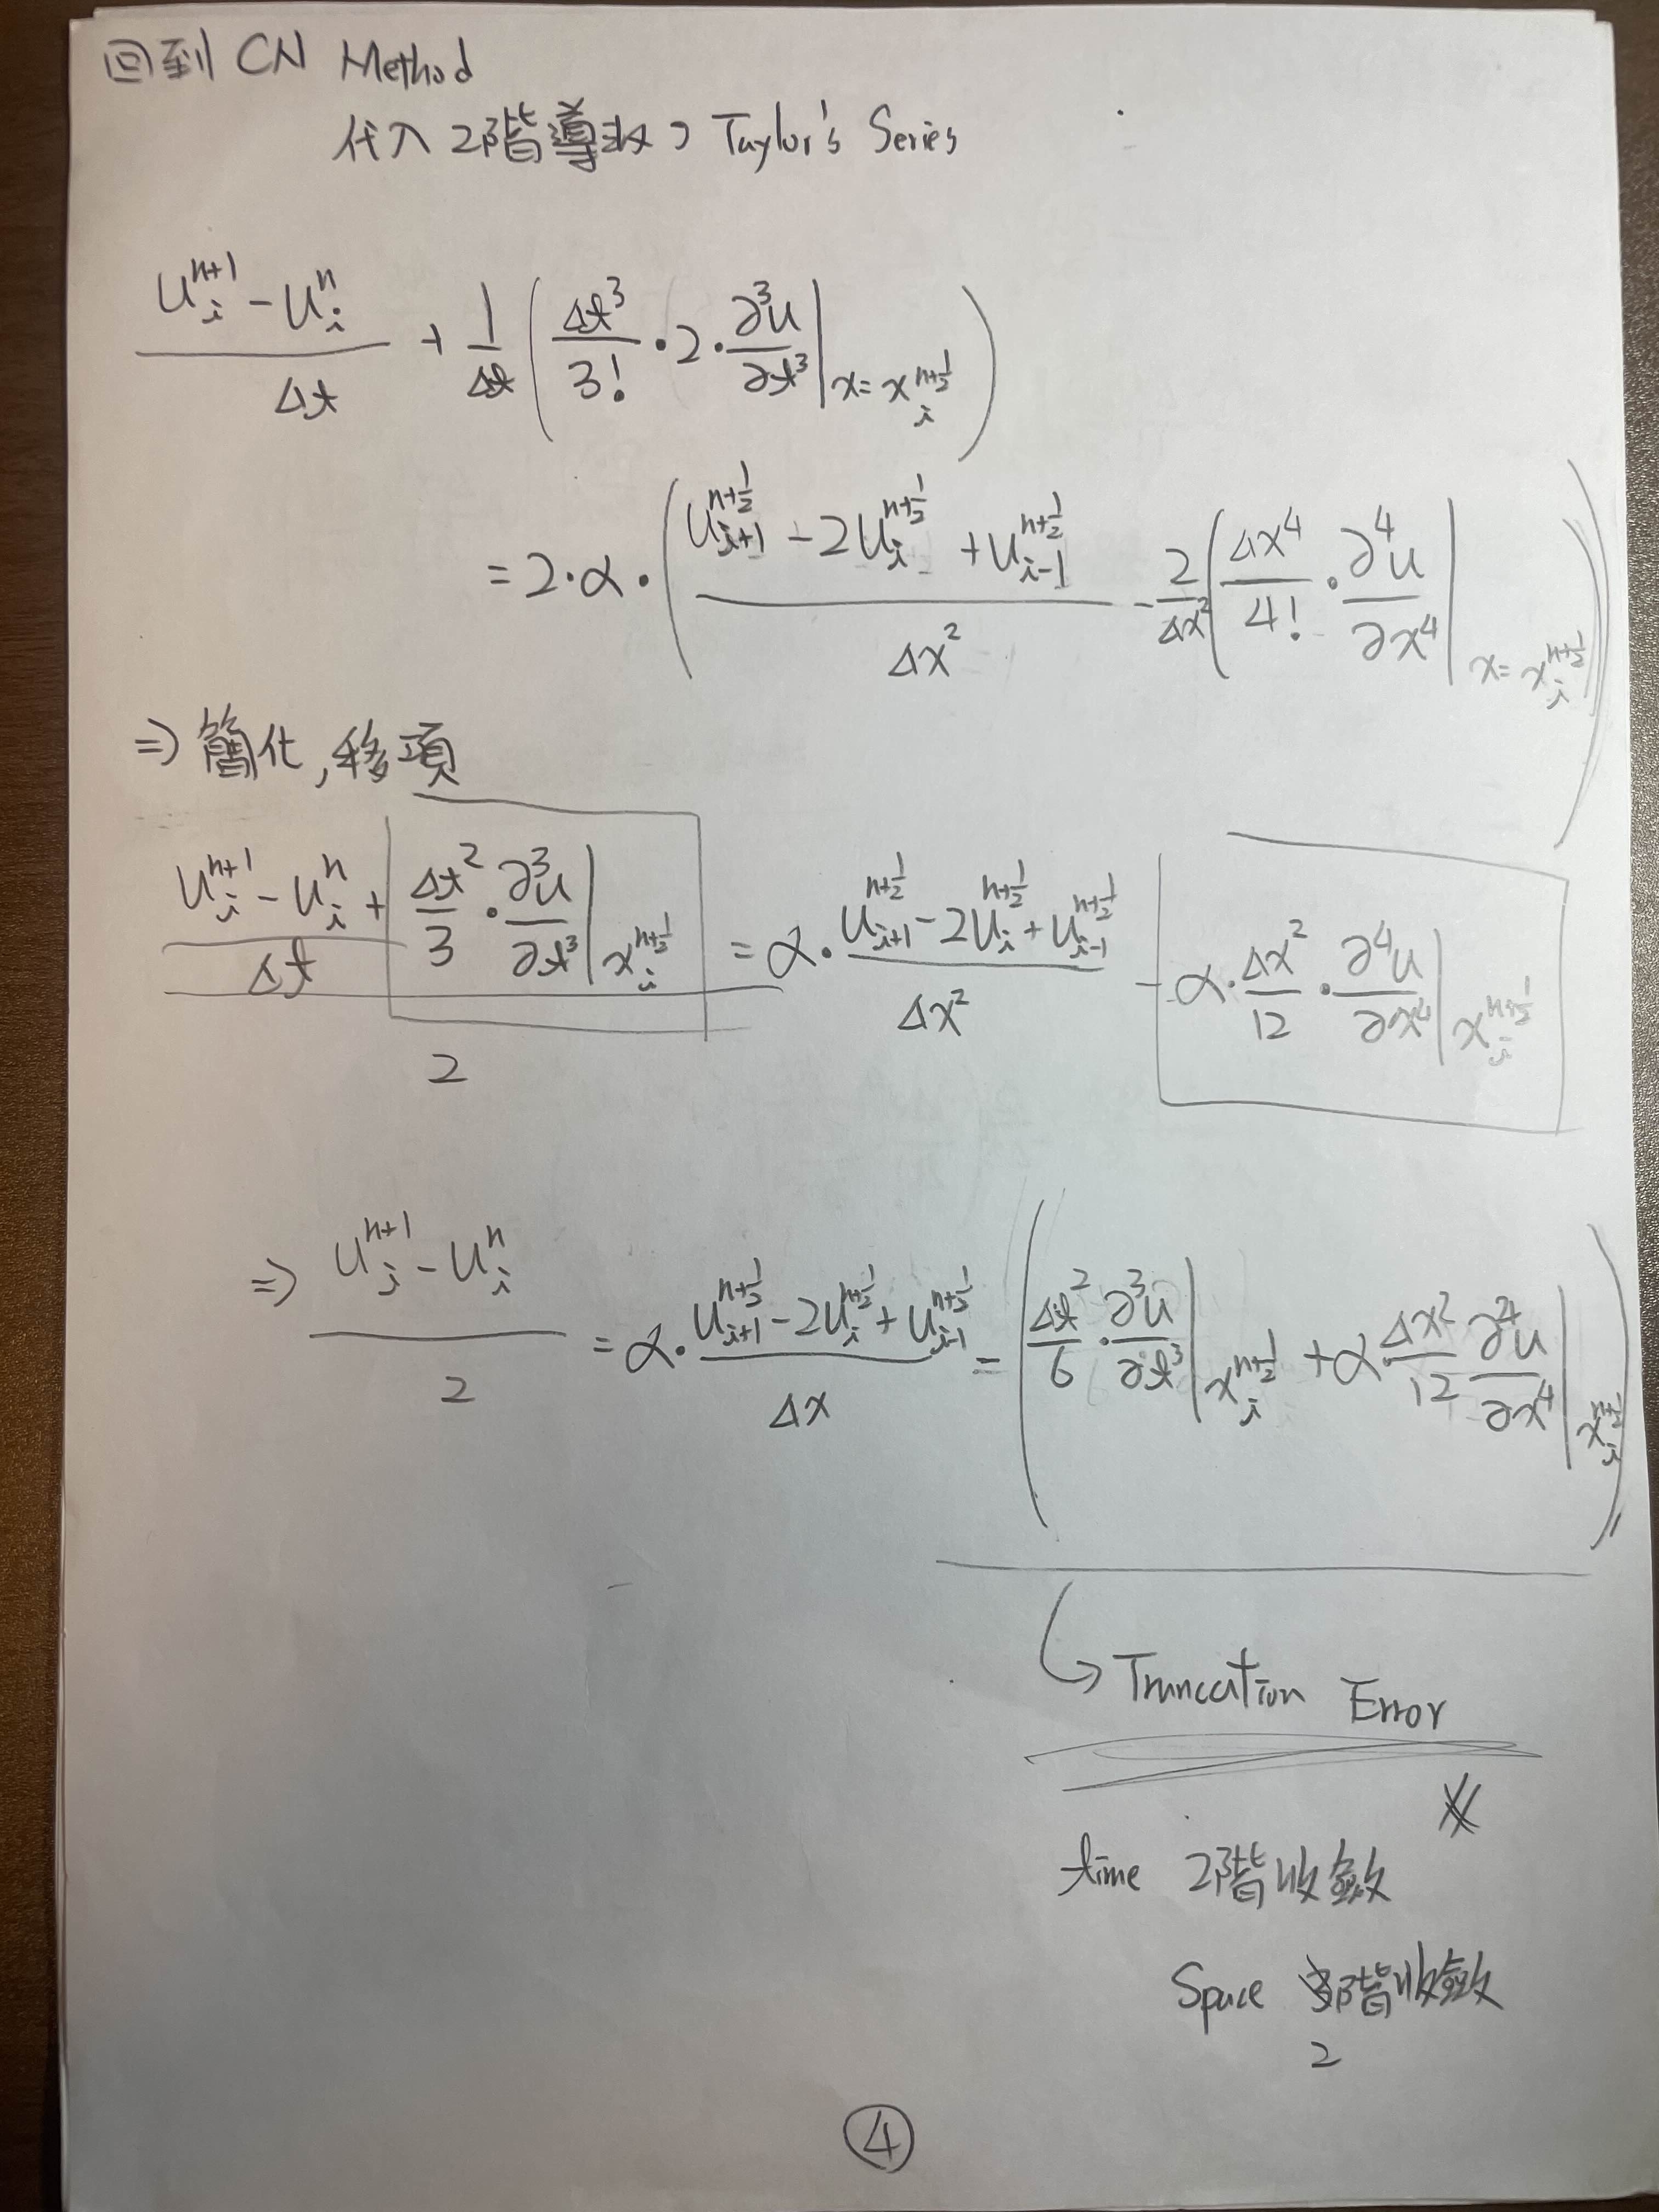 回到 CN Method
代入 2階導数 Taylor's Series
\frac{u_i^{n+1} - u_i^n}{\Delta t} + \frac{1}{\Delta t} \left( \frac{\Delta t^3}{3!} \cdot 2 \cdot \frac{\partial^3 u}{\partial t^3} \Big|_{x = x_i^{n+\frac{1}{2}}} \right)
= 2 \cdot \alpha \cdot \left( \frac{u_{i+1}^{n+\frac{1}{2}} - 2u_i^{n+\frac{1}{2}} + u_{i-1}^{n+\frac{1}{2}}}{\Delta x^2} - \frac{2}{\Delta x^2} \left( \frac{\Delta x^4}{4!} \cdot \frac{\partial^4 u}{\partial x^4} \Big|_{x = x_i^{n+\frac{1}{2}}} \right) \right)
⇒ 簡化, 移項
\frac{\frac{u_i^{n+1} - u_i^n}{\Delta t} + \frac{\Delta t^2}{3} \cdot \frac{\partial^3 u}{\partial t^3} \Big|_{x_i^{n+\frac{1}{2}}}}{2} = \alpha \cdot \frac{u_{i+1}^{n+\frac{1}{2}} - 2u_i^{n+\frac{1}{2}} + u_{i-1}^{n+\frac{1}{2}}}{\Delta x^2} - \alpha \cdot \frac{\Delta x^2}{12} \cdot \frac{\partial^4 u}{\partial x^4} \Big|_{x_i^{n+\frac{1}{2}}}
⇒ \frac{u_i^{n+1} - u_i^n}{2} = \alpha \cdot \frac{u_{i+1}^{n+\frac{1}{2}} - 2u_i^{n+\frac{1}{2}} + u_{i-1}^{n+\frac{1}{2}}}{\Delta x} = \left( \frac{\Delta t^2}{6} \cdot \frac{\partial^3 u}{\partial t^3} \Big|_{x_i^{n+\frac{1}{2}}} + \alpha \cdot \frac{\Delta x^2}{12} \frac{\partial^4 u}{\partial x^4} \Big|_{x_i^{n+\frac{1}{2}}} \right)
↳ Truncation Error
time 2階收斂
Space 階收斂
2
④